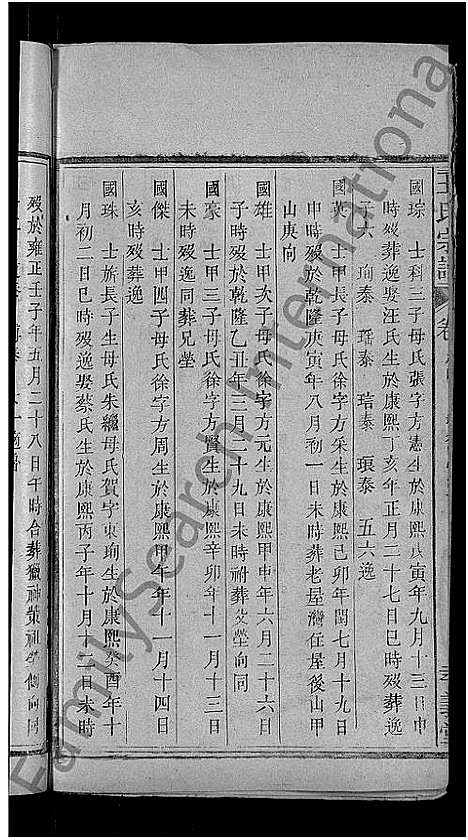 王氏宗譜
國琮 士科三子母氏張字方憲生於康熙庚寅年九月十三日申
時歿葬逸娶汪氏生於康熙丁亥年正月二十七日巳時歿葬逸
子六 珣泰 璠泰 琣泰 琅泰 五六逸
國英 士甲長子母氏徐字方采生於康熙己卯年閏七月十九日
申時歿於乾隆庚寅年八月初一日未時葬老屋灣任屋後山甲
山庚向
國雄 士甲次子母氏徐字方元生於康熙甲申年六月二十六日
子時歿於乾隆乙丑年三月二十九日未時祔葬父塋向同
國豪 士甲三子母氏徐字方賢生於康熙辛卯年十一月十三日
未時歿逸同葬兄塋
國傑 士甲四子母氏徐字方周生於康熙甲午年十一月十四日
亥時歿葬逸
國珠 士旂長子生母氏朱繼母氏賀字東瑜生於康熙癸酉年十
月初二日巳時歿逸娶蔡氏生於康熙丙子年十月十六日未時
歿於雍正壬子年五月二十八日午時合葬獵神策祖塋側向同
FamilySearch International